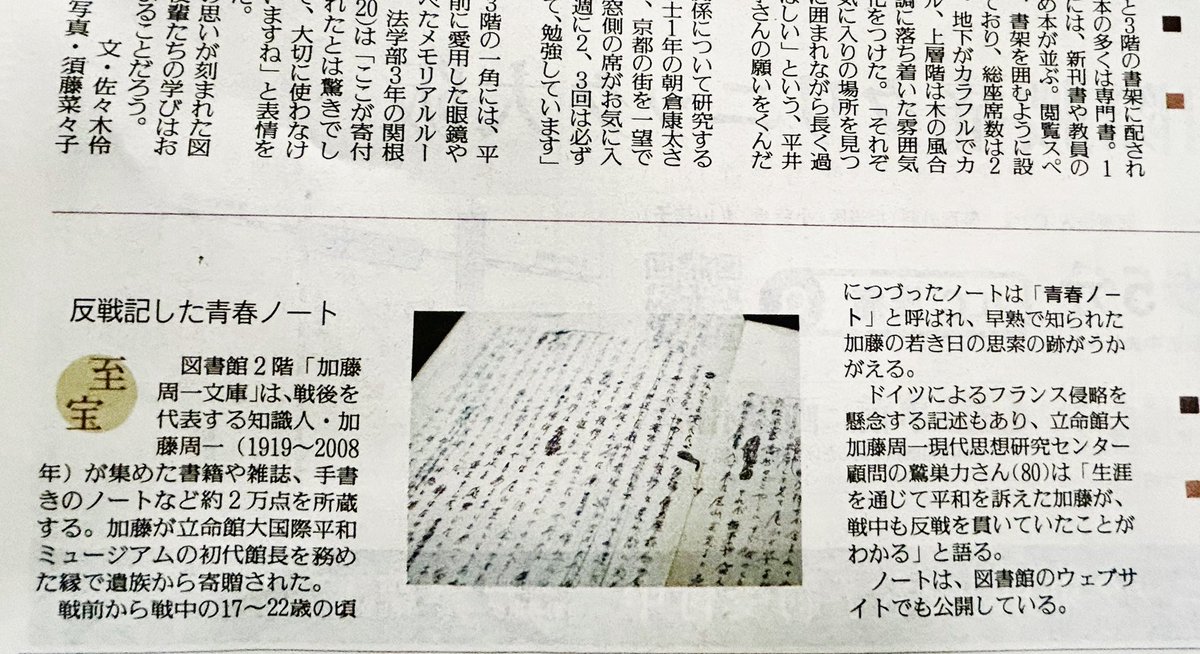 と3階の書架に配され
本の多くは専門書。1
には、新刊書や教員の
め本が並ぶ。閲覧スペ
、書架を囲むように設
ており、総座席数は2
。地下がカラフルでカ
ル、上層階は木の風合
調に落ち着いた雰囲気
化をつけた。「それぞ
気に入りの場所を見つ
に囲まれながら長く過
ほしい」という、平井
さんの願いをくんだ
係について研究する
士1年の朝倉康太さ
、京都の街を一望で
窓側の席がお気に入
週に2、3回は必ず
て、勉強しています」
3階の一角には、平
前に愛用した眼鏡や
べたメモリアルルー
法学部3年の関根
20)は「ここが寄付
れたとは驚きでし
、大切に使わなけ
ますね」と表情を
た。
の思いが刻まれた図
後輩たちの学びはお
ることだろう。
文・佐々木伶
写真・須藤菜々子
反戦記した青春ノート
至宝
図書館2階「加藤
周一文庫」は、戦後を
代表する知識人・加
藤周一(1919〜2008
年)が集めた書籍や雑誌、手書
きのノートなど約2万点を所蔵
する。加藤が立命館大国際平和
ミュージアムの初代館長を務め
た縁で遺族から寄贈された。
戦前から戦中の17〜22歳の頃
につづったノートは「青春ノー
ト」と呼ばれ、早熟で知られた
加藤の若き日の思索の跡がうか
がえる。
ドイツによるフランス侵略を
懸念する記述もあり、立命館大
加藤周一現代思想研究センター
顧問の鷲巣力さん(80)は「生涯
を通じて平和を訴えた加藤が、
戦中も反戦を貫いていたことが
わかる」と語る。
ノートは、図書館のウェブサ
イトでも公開している。